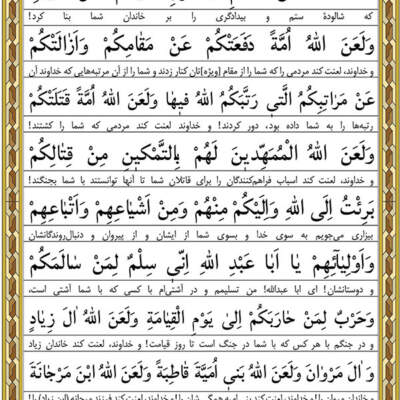 که شالودهٔ ستم و بیدادگری را بر خاندان شما بنا کرد!
وَلَعَنَ اللهُ اُمَّةً دَفَعَتْكُمْ عَنْ مَقَامِكُمْ وَاَزَالَتْكُمْ
و خداوند، لعنت کند مردمی را که شما را از مقام [ویژه]تان کنار زدند و شما را از آن مرتبه‌هایی که خداوند آن
عَنْ مَرَاتِبِكُمُ الَّتی رَتَّبَكُمُ اللهُ فیهَا وَلَعَنَ اللهُ اُمَّةً قَتَلَتْكُمْ
رتبه‌ها را به شما داده بود، دور کردند! و خداوند لعنت کند مردمی که شما را کشتند!
وَلَعَنَ اللهُ الْمُمَهِّدینَ لَهُمْ بِالتَّمْكینِ مِنْ قِتَالِكُمْ
و خداوند، لعنت کند اسباب فراهم‌کنندگان را برای قاتلان شما تا آنها توانستند با شما بجنگند!
بَرِئْتُ اِلَی اللهِ وَاِلَیْكُمْ مِنْهُمْ وَمِنْ اَشْیَاعِهِمْ وَاَتْبَاعِهِمْ
بیزاری می‌جویم به سوی خدا و بسوی شما از ایشان و از پیروان و دنبال‌روندگانشان
وَاَوْلِیَآئِهِمْ یَا اَبَا عَبْدِ اللهِ اِنّی سِلْمٌ لِمَنْ سَالَمَكُمْ
و دوستانشان! ای ابا عبدالله! من تسلیمم و در آشتی‌ام با کسی که با شما آشتی است،
وَحَرْبٌ لِمَنْ حَارَبَكُمْ اِلیٰ یَوْمِ الْقِیَامَةِ وَلَعَنَ اللهُ اٰلَ زِیَادٍ
و در جنگم با هر کس که با شما در جنگ است تا روز قیامت! و خداوند، لعنت کند خاندان زیاد
وَ اٰلَ مَرْوَانَ وَلَعَنَ اللهُ بَنی اُمَیَّةَ قَاطِبَةً وَلَعَنَ اللهُ ابْنَ مَرْجَانَةَ